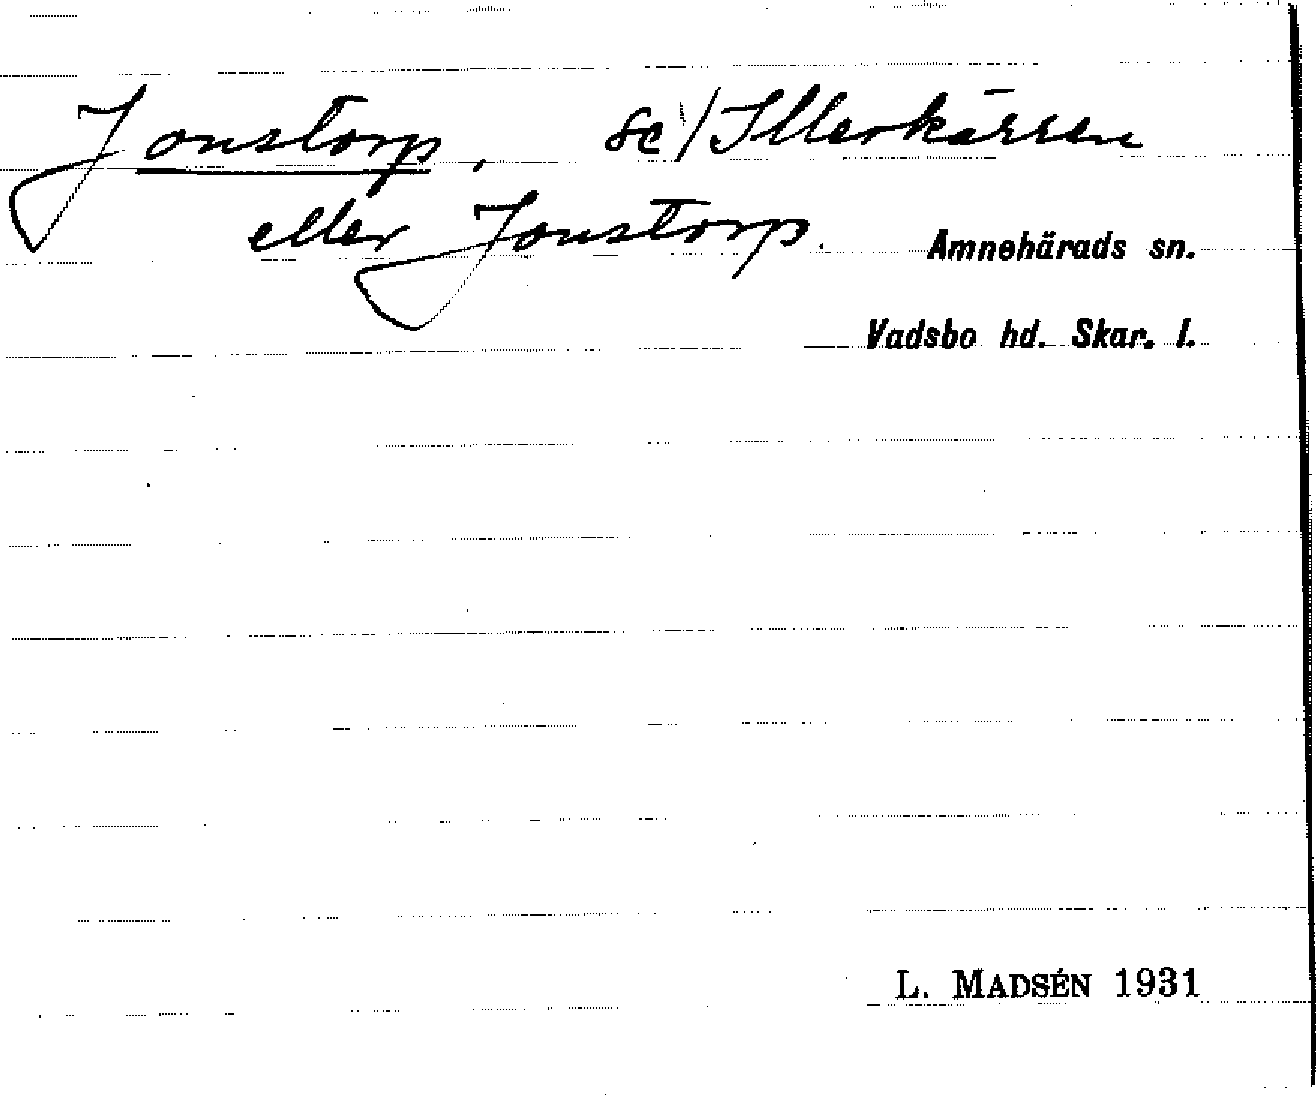 Jonstorp, se 1/ Illerkärren
eller Jonstorp.
Amnehärads sn.
Vadsbo hd. Skar. l.
L. MADSÉN 1931